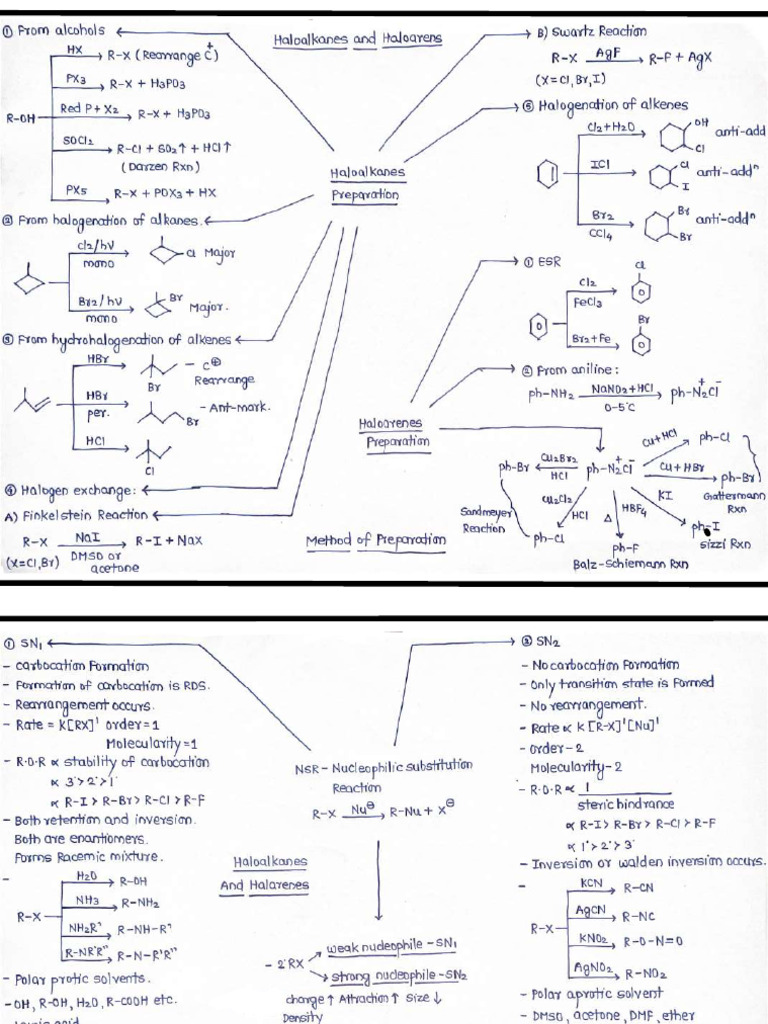 Haloalkanes and Haloarens
① From alcohols
R-OH
HX R-X (Rearrange C⁺)
PX3 R-X + H3PO3
Red P+X2 R-X + H3PO3
SOCl2 R-Cl + SO2↑ + HCl↑
(Darzen Rxn)
PX5 R-X + POX3 + HX
② From halogenation of alkanes.
Cl2/hν
mono
Cl Major
Br2/hν
mono
Br Major.
③ From hydrohalogenation of alkenes
HBr
Br
- C⊕
Rearrange
HBr
per.
Br
- Ant-mark.
HCl
Cl
④ Halogen exchange:
A) Finkelstein Reaction
R-X NaI R-I + NaX
(X=Cl,Br) DMSO or
acetone
Haloalkanes
Preparation
B) Swartz Reaction
R-X AgF R-F + AgX
(X=Cl,Br,I)
⑤ Halogenation of alkenes
Cl2+H2O OH Cl anti-add
ICl Cl I anti-addⁿ
Br2
CCl4
Br Br anti-addⁿ
Haloarenes
Preparation
① ESR
Cl2
FeCl3
Cl
Br2+Fe
Br
② From aniline:
ph-NH2 NaNO2+HCl ph-N2⁺Cl⁻
0-5°C
ph-N2⁺Cl⁻
Cu+HCl ph-Cl
Cu+HBr ph-Br
Gattermann
Rxn
KI ph-I
Sizzi Rxn
HBF4
Δ
ph-F
Balz-Schiemann Rxn
Cu2Br2
HCl
ph-Br
Cu2Cl2
HCl
ph-Cl
Sandmeyer
Reaction
Method of Preparation
① SN1
- carbocation Formation
- Formation of carbocation is RDS.
- Rearrangement occurs.
- Rate = k[RX]¹ order=1
Molecularity=1
- R.O.R ∝ stability of carbocation
∝ 3°>2°>1°
∝ R-I > R-Br > R-Cl > R-F
- Both retention and inversion.
Both are enantiomers.
Forms Racemic mixture.
-
R-X
H2O R-OH
NH3 R-NH2
NH2R' R-NH-R'
R-NR'R" R-N-R'R"
- Polar protic solvents.
-OH, R-OH, H2O, R-COOH etc.
NSR - Nucleophilic substitution
Reaction
R-X Nu⊖ R-Nu + X⊖
Haloalkanes
And Halarenes
- 2°RX
weak nucleophile - SN1
strong nucleophile - SN2
charge↑ Attraction↑ Size↓
Density
② SN2
- No carbocation Formation
- Only transition state is Formed
- No rearrangement.
- Rate ∝ k [R-X]¹[Nu]¹
- order-2
Molecularity-2
- R.O.R ∝ 1
steric hindrance
∝ R-I > R-Br > R-Cl > R-F
∝ 1°>2°>3°
- Inversion or walden inversion occurs.
-
R-X
KCN R-CN
AgCN R-NC
KNO2 R-O-N=O
AgNO2 R-NO2
- Polar aprotic solvent
- DMSO, acetone, DMF, ether